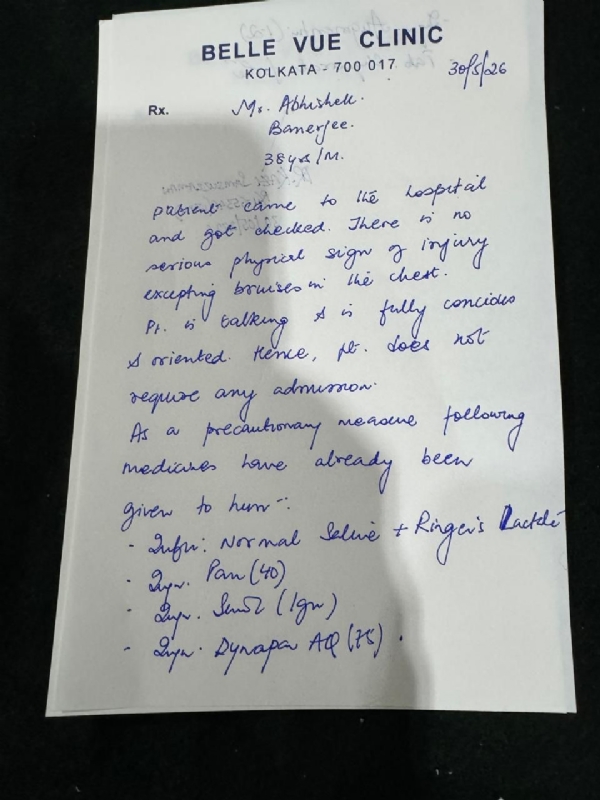 BELLE VUE CLINIC
KOLKATA - 700 017
30/5/26
Rx.
Mr. Abhishek
Banerjee.
38yrs/M.
patient came to the hospital
and got checked. There is no
serious physical sign of injury
excepting bruises in the chest.
Pt. is talking & is fully concides
& oriented. Hence, pt. does not
require any admission.
As a precautionary measure following
medicines have already been
given to him -:
- Infu: Normal Saline + Ringer's Lactate
- Inj. Pan (40)
- Inj. (1gm)
- Inj. Dynapar AQ (75).